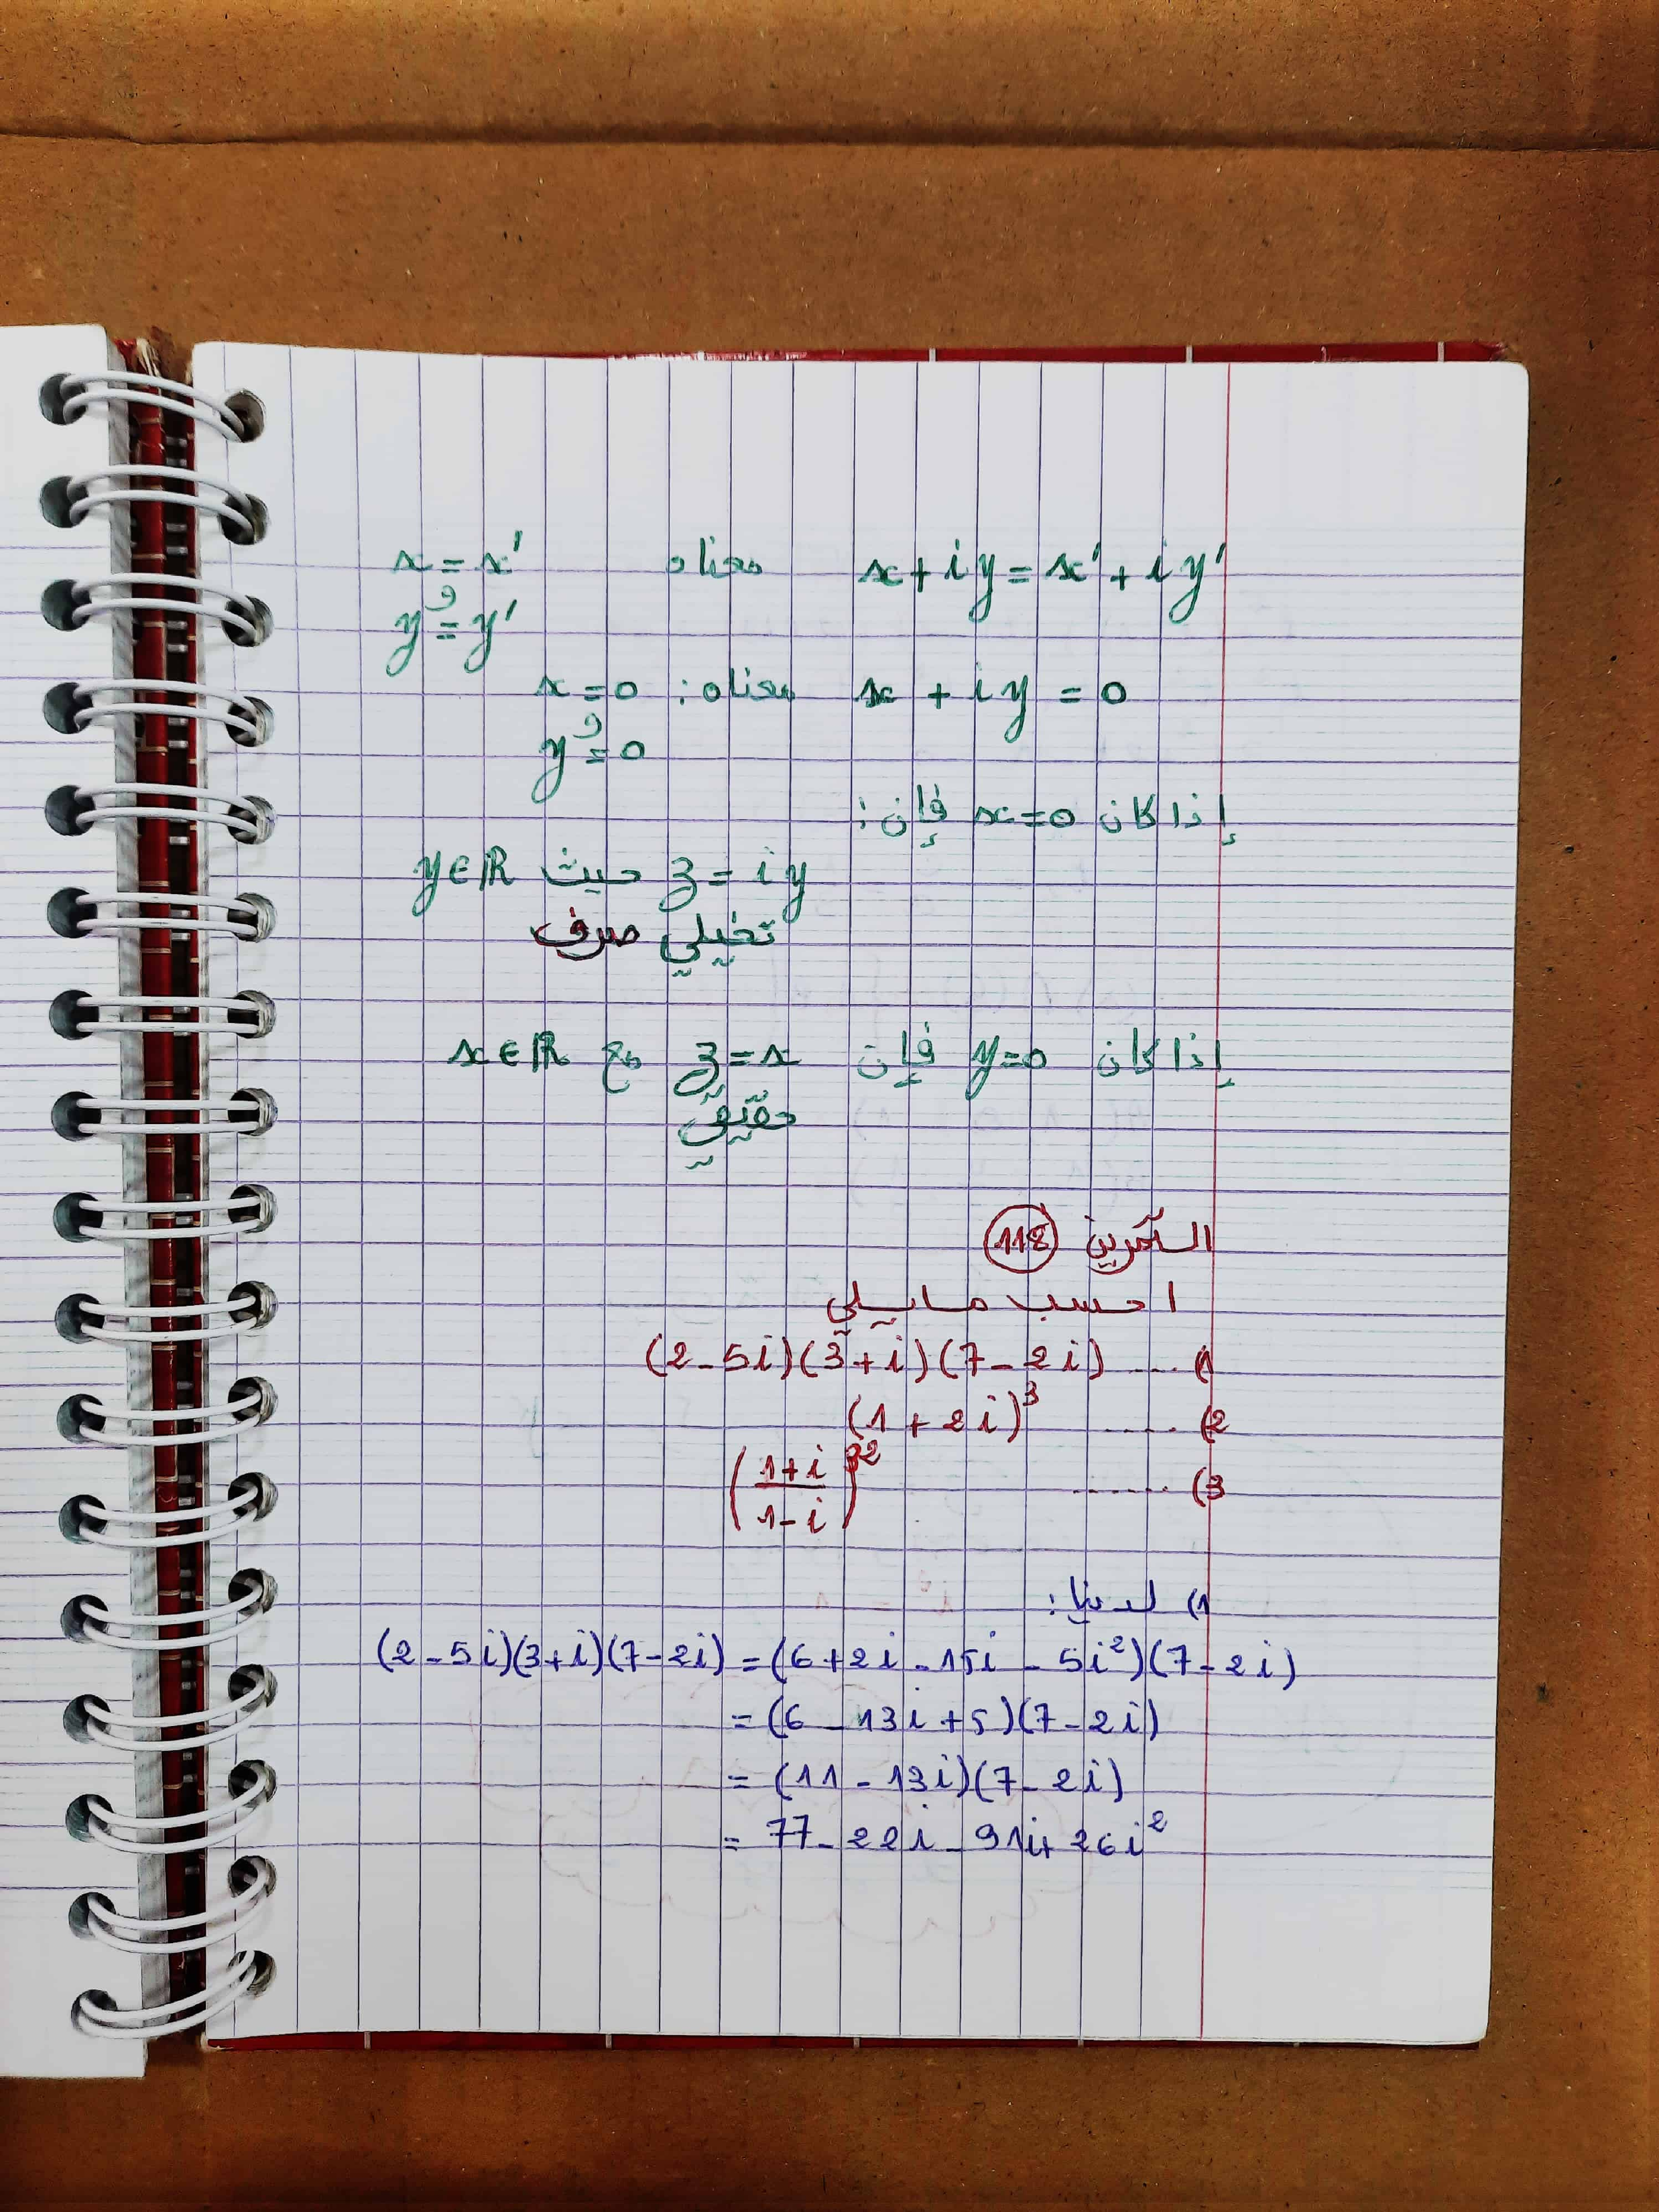 x+iy=x'+iy' معناه x=x'
و
y=y'
x+iy=0 معناه: x=0
و
y=0
إذا كان x=0 فإن:
z=iy حيث y∈ℝ
تخيلي صرف
إذا كان y=0 فإن z=x مع x∈ℝ
حقيقي
التمرين 118
احسب مايلي
1) .... (2-5i)(3+i)(7-2i)
2) ..... (1+2i)³
3) ...... ((1+i)/(1-i))³²
1) لدينا:
(2-5i)(3+i)(7-2i) = (6+2i-15i-5i²)(7-2i)
= (6-13i+5)(7-2i)
= (11-13i)(7-2i)
= 77-22i-91i+26i²